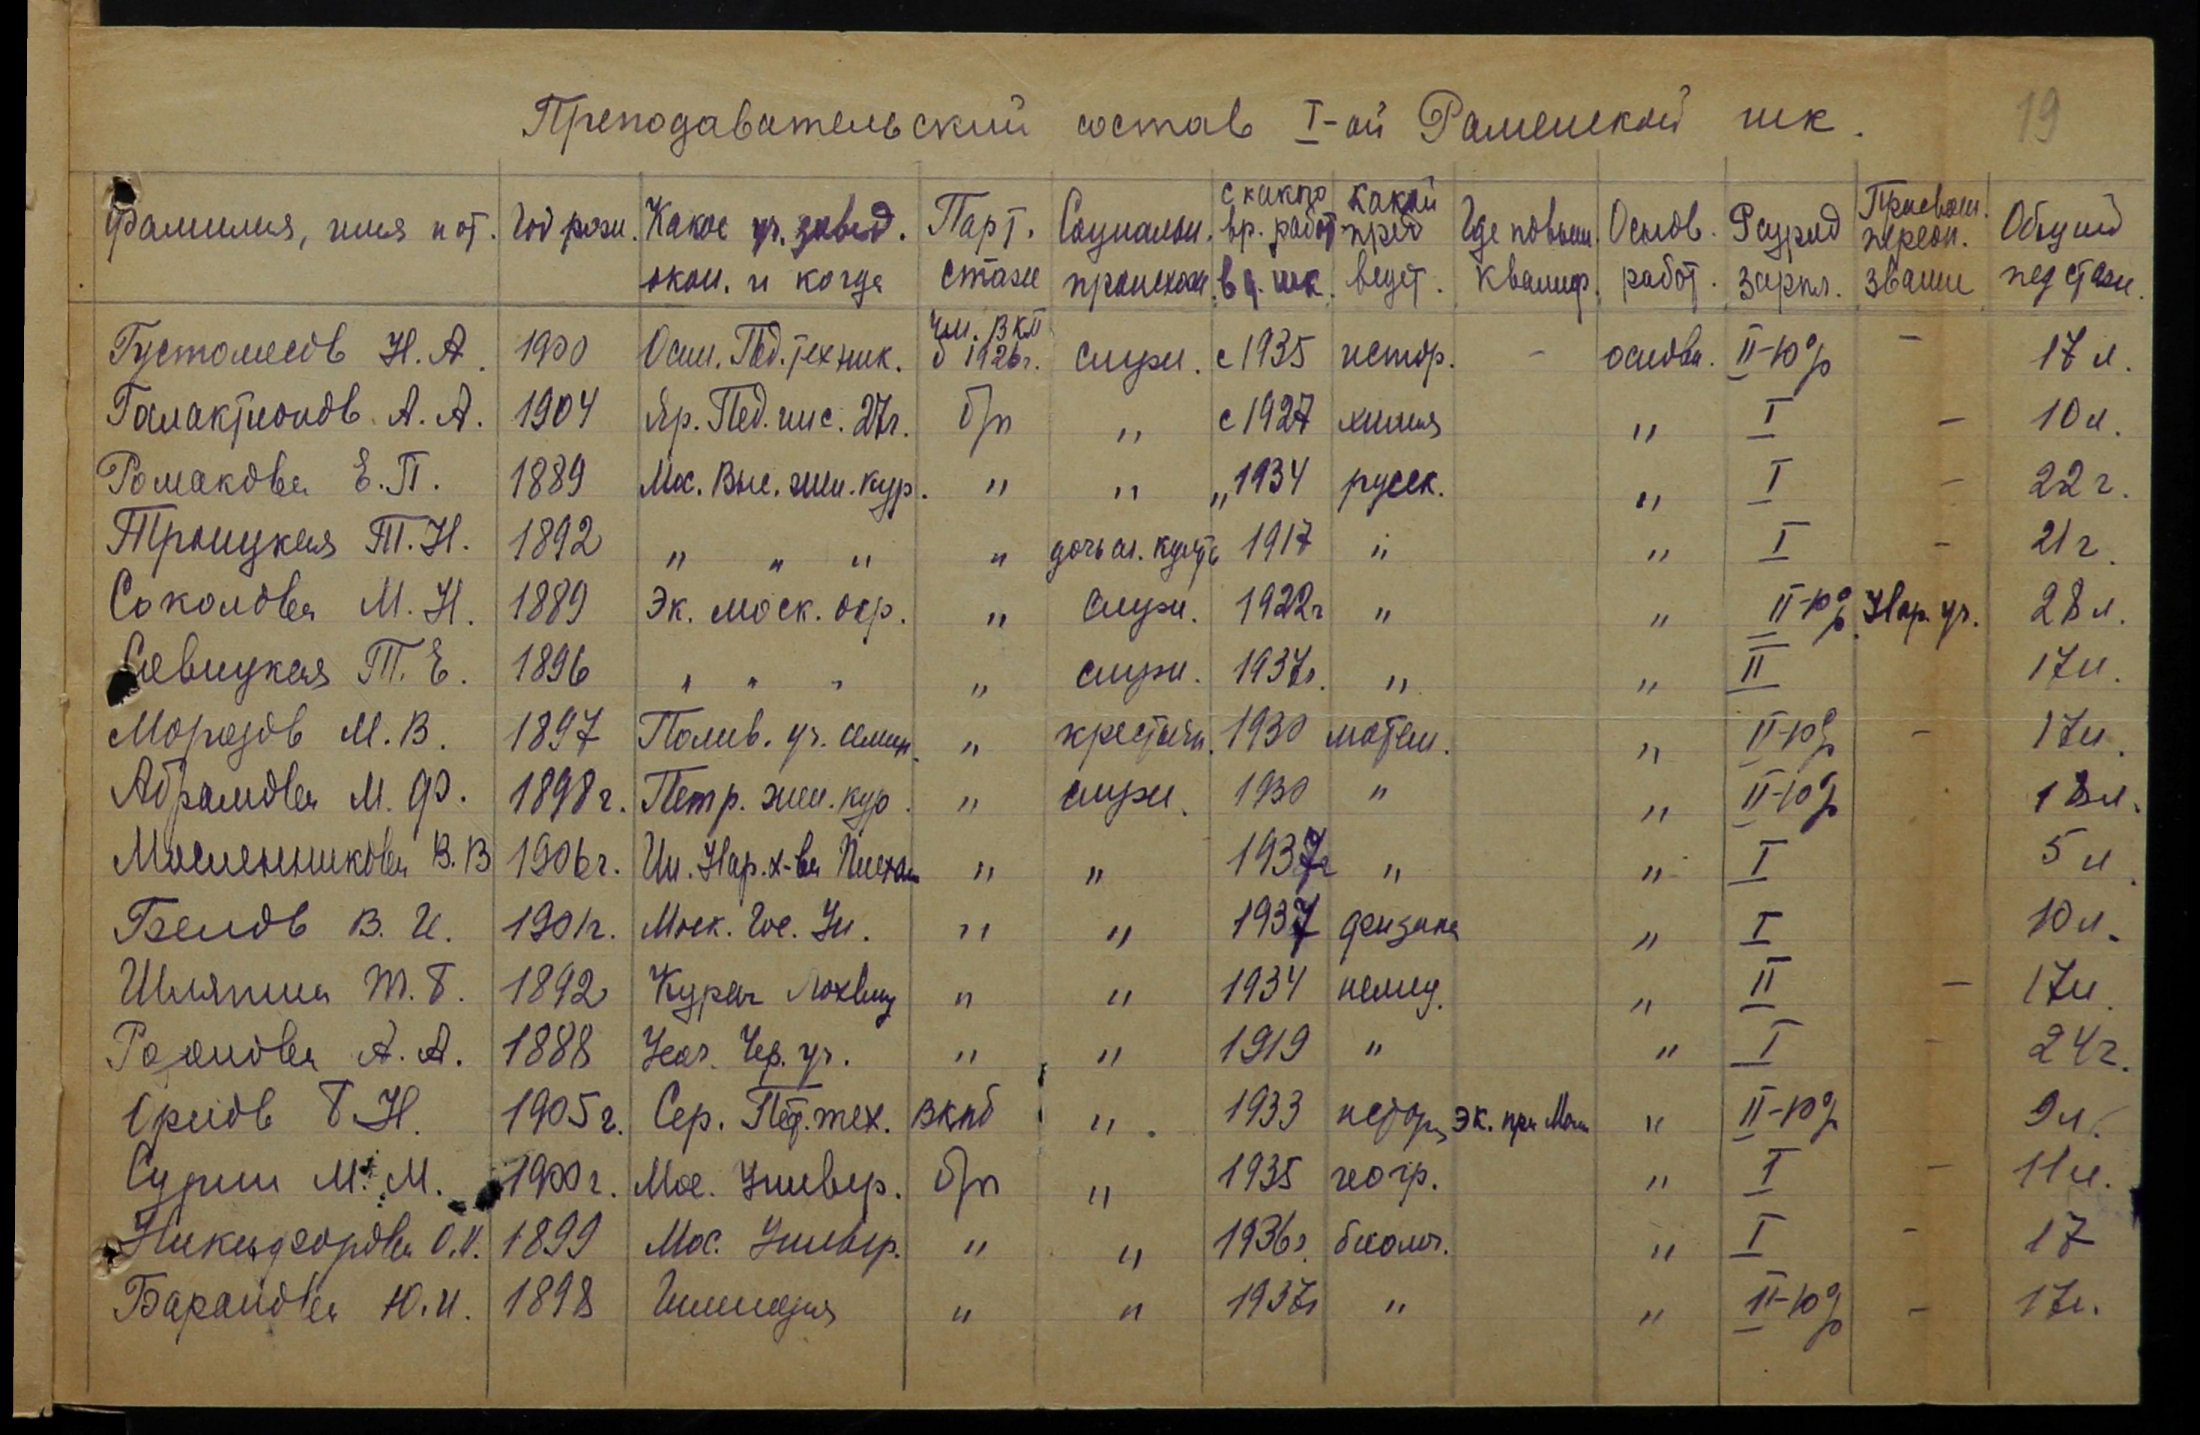 Преподавательский состав I-ой Раменской шк. 19
Фамилия, имя и от. Год рожд. Какое уч. завед. окон. и когда Парт. стаж Социальн. происхожд. с какого вр. работ. в д. шк. какой пред ведет. Где повыш. квалиф. Основ. работ. Разряд зарпл. Присвоен. персон. звание Общий пед стаж.
Густомесов Н. А. 1900 Осш. Пед. техник. Чл. ВКП с 1926г. служ. с 1935 истор. - основн. II-10% - 17 л.
Галактионов А. А. 1904 Яр. Пед. инс. 27г. б/п " с 1927 химия " I - 10 л.
Ромакова Е. П. 1889 Мос. Выс. жен. кур. " " " 1934 русск. " I - 22 г.
Троицкая Т. Н. 1892 " " " " дочь сл. культа 1917 " " I - 21 г.
Соколова М. Н. 1889 Эк. моск. окр. " служ. 1922г " " II-10% Нар. уч. 28 л.
Савицкая Т. Е. 1896 " " " " служ. 1937г. " " II 17 л.
Морозов М. В. 1897 Полив. уч. семин. " крестьян. 1930 матем. " II-10% - 17 л.
Абрамова М. Ф. 1898 г. Петр. жен. кур. " служ. 1930 " " II-10% 18 л.
Масленникова В. В. 1906 г. Ин. Нар. х-ва Плехан " " 1937г " " I 5 л.
Белов В. И. 1901г. Моск. Гос. Ун. " " 1937 физика " I 10 л.
Шляпина Т. Б. 1892 Курсы Лохвиц " " 1934 немец. " II - 17 л.
Розанова А. А. 1888 Усач. Чер. уч. " " 1919 " " I - 24 г.
Орлов Б. Н. 1905 г. Сер. Пед. тех. вкпб " 1933 истор. эк. при Моги " II-10% 9 л.
Сурин М. М. 1900 г. Мос. Универ. б/п " 1935 геогр. " I - 11 л.
Никифорова О. И. 1899 Мос. Универ. " " 1936г. биолог. " I - 17
Баранова Ю. И. 1898 Гимназия " " 1937г " " II-10% - 17 л.